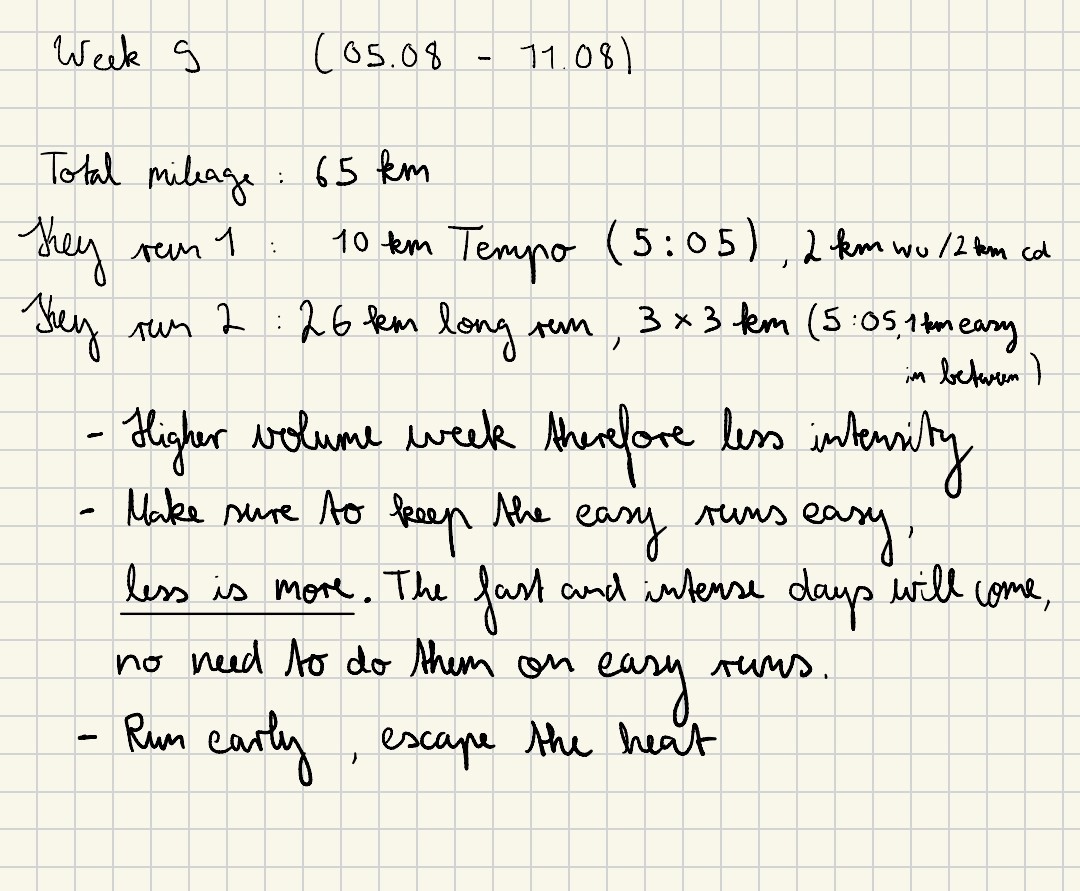 Week 9 (05.08 - 11.08)
Total mileage : 65 km
Key run 1 : 10 km Tempo (5:05), 2 km wu/2 km cd
Key run 2 : 26 km long run, 3 x 3 km (5:05, 1 km easy
in between)
- Higher volume week therefore less intensity
- Make sure to keep the easy runs easy,
less is more. The fast and intense days will come,
no need to do them on easy runs.
- Run early, escape the heat